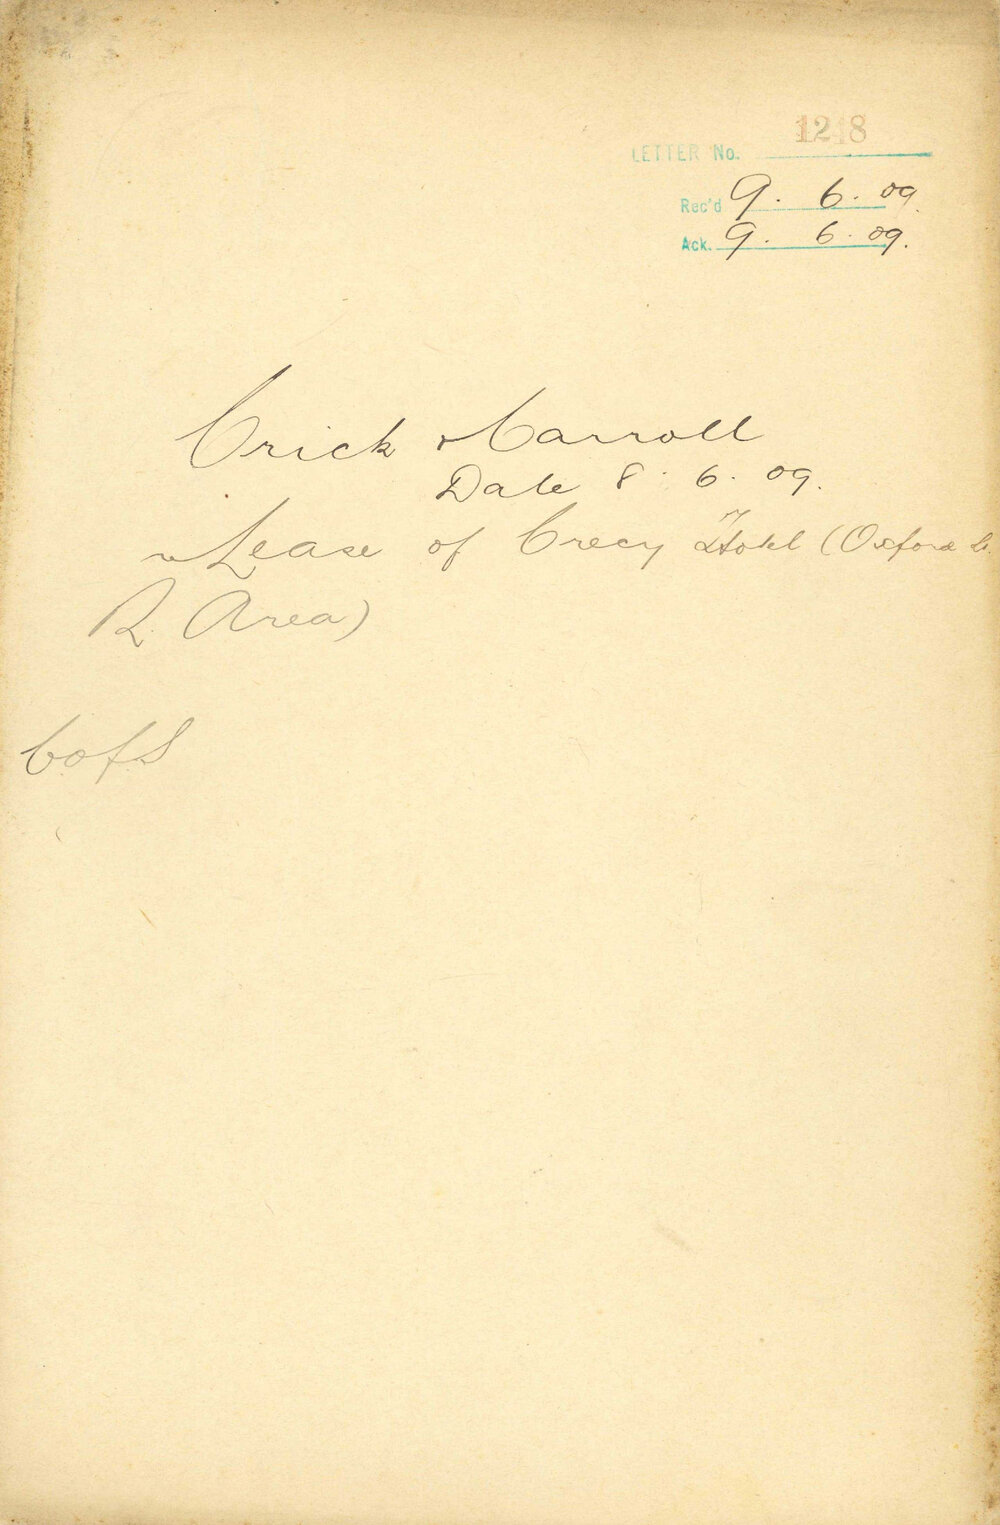 LETTER No. 1218
Rec'd 9. 6. 09.
Ack. 9. 6. 09.
Crick & Carroll
Date 8. 6. 09.
Lease of Crecy Hotel (Oxford St.
R. Area)
C of S